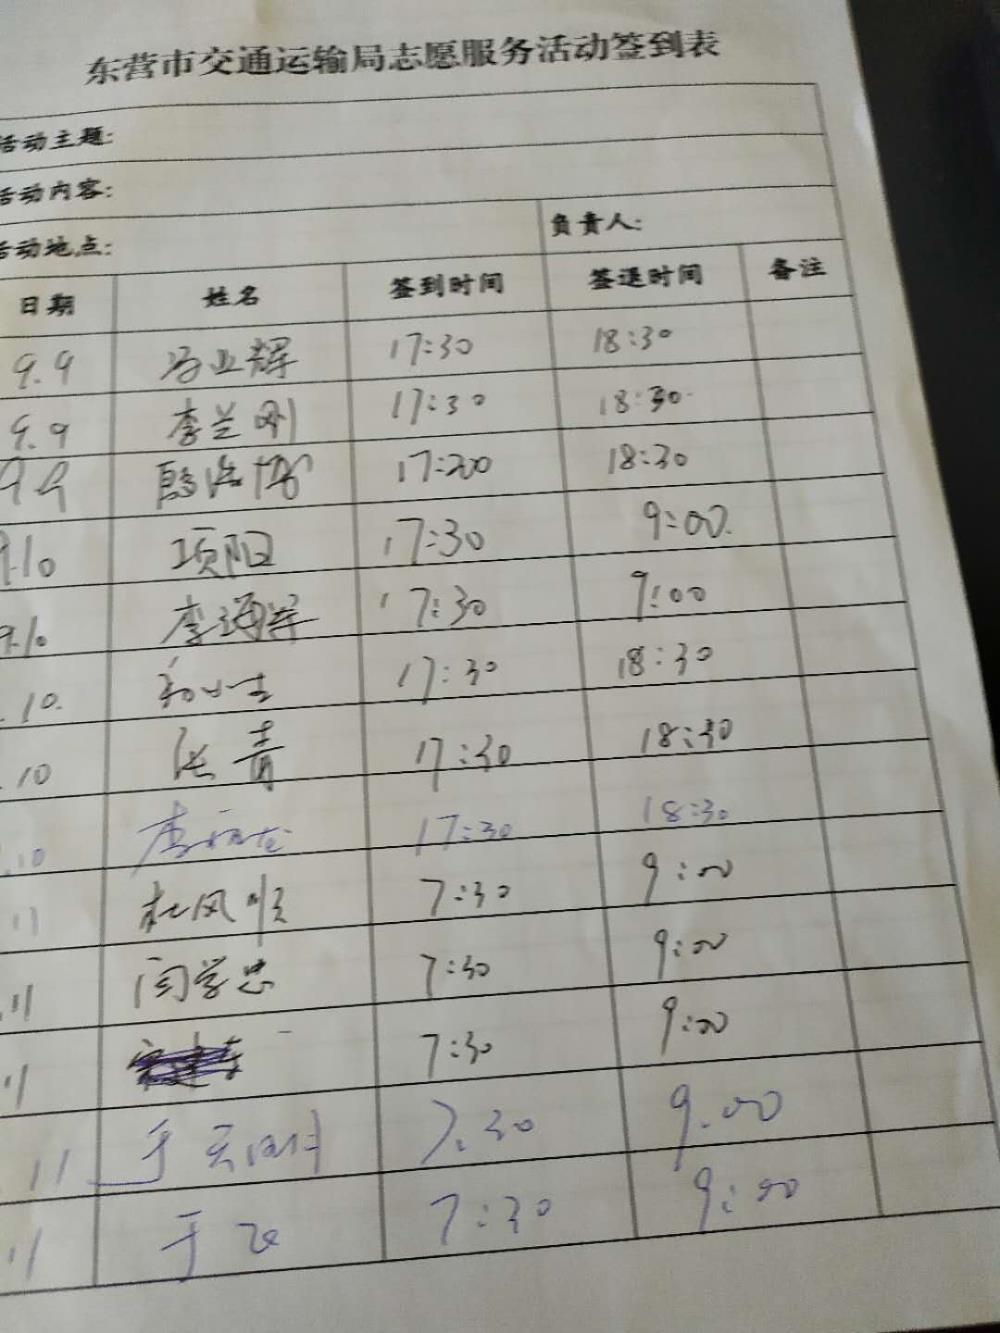 东营市交通运输局志愿服务活动签到表
活动主题:
活动内容:
活动地点: 负责人:
日期 姓名 签到时间 签退时间 备注
9.9 马业辉 17:30 18:30
9.9 李兰刚 17:30 18:30
9.9 17:20 18:30
9.10 项阳 17:30 9:00
9.10 李海洋 17:30 9:00
.10. 17:30 18:30
.10 张青 17:30 18:30
.10 17:30 18:30
11 杜风顺 7:30 9:00
.11 闫学忠 7:30 9:00
11 7:30 9:00
.11 于 7.30 9.00
.11 于飞 7:30 9:00